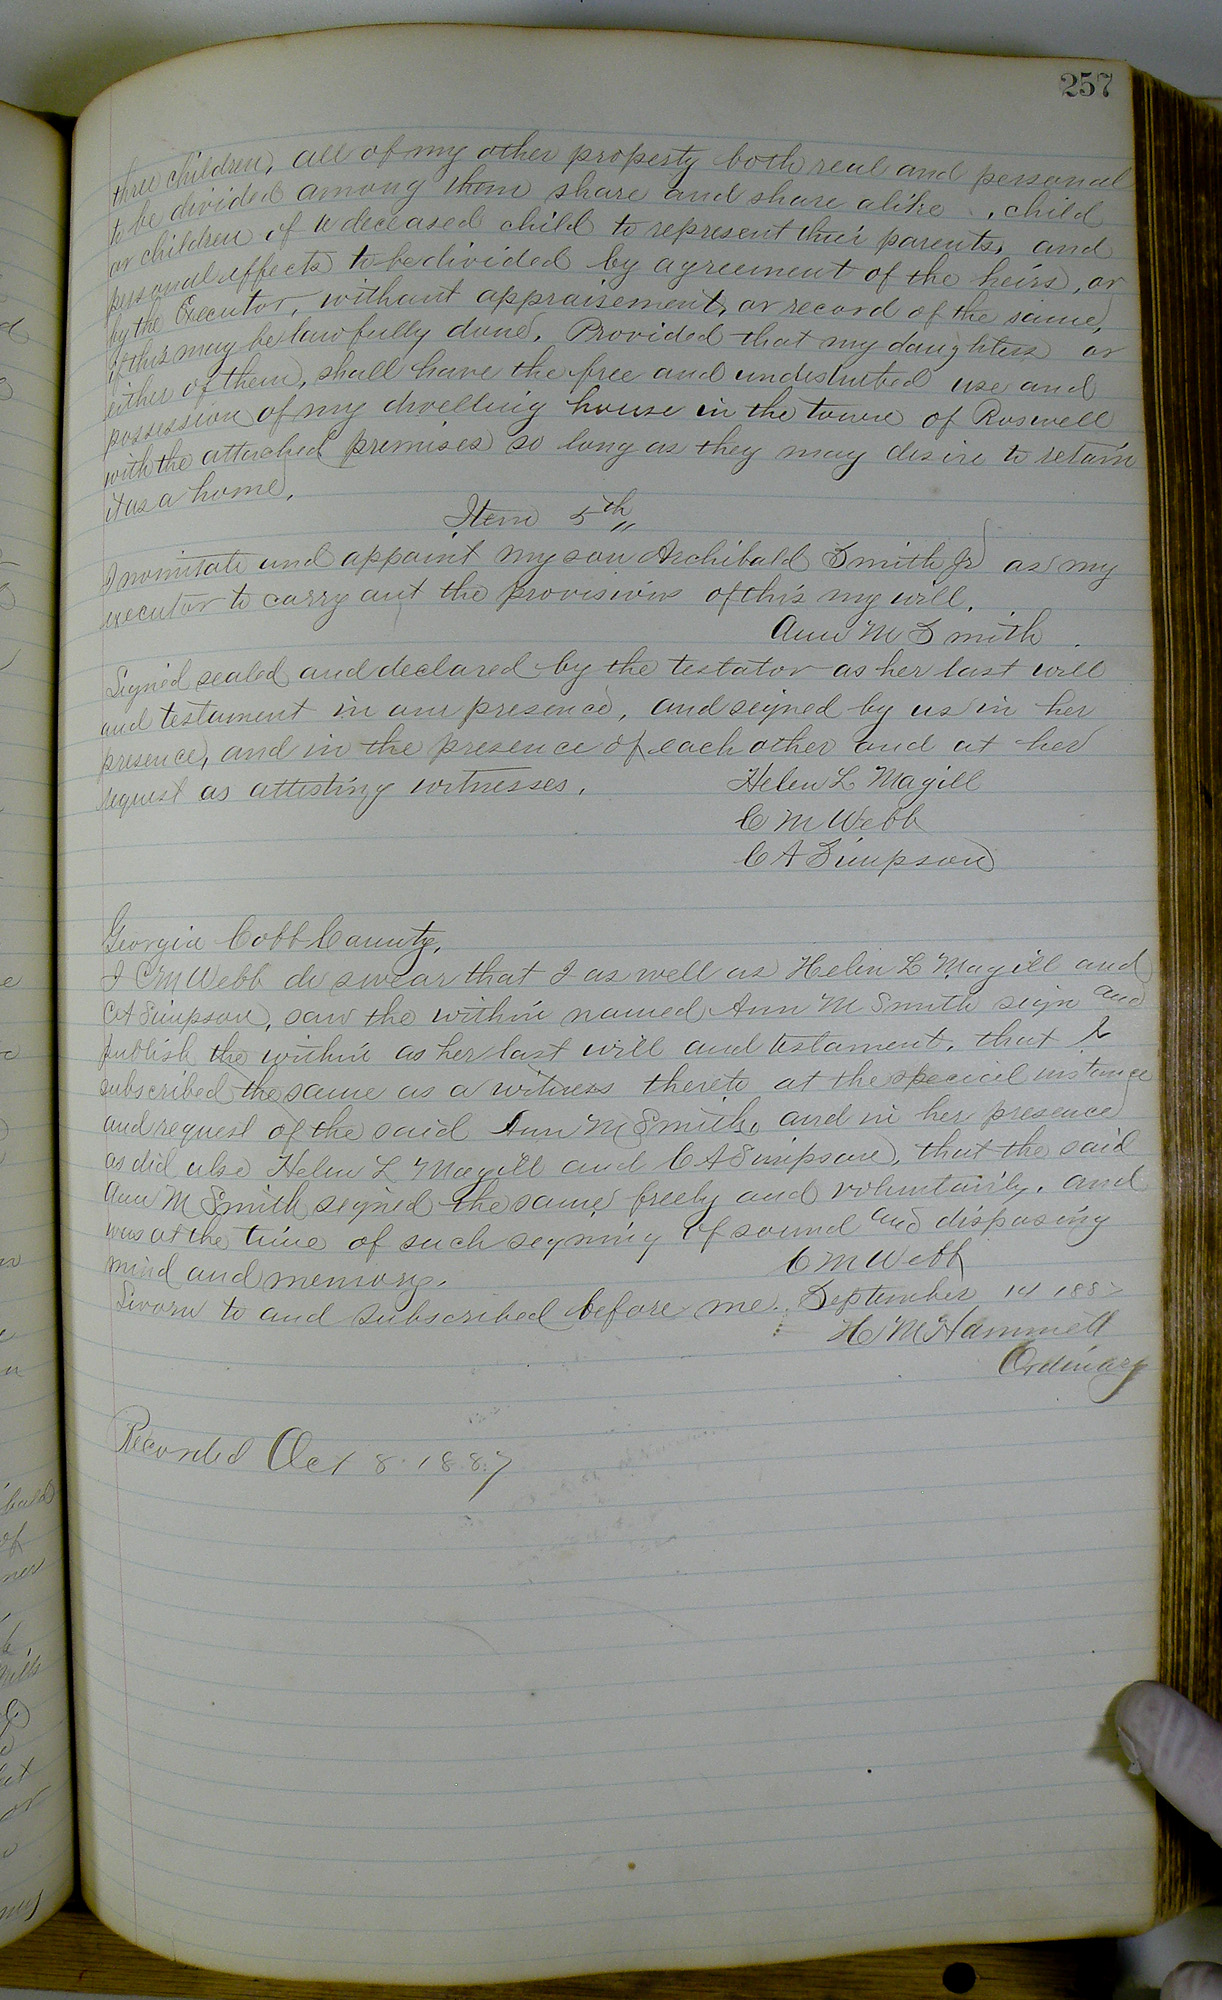 257
three children, all of my other property both real and personal
to be divided among them share and share alike, child
or children of a deceased child to represent their parents, and
personal effects to be divided by agreement of the heirs, or
by the Executor, without appraisement, or record of the same,
if this may be lawfully done. Provided that my daughters or
either of them, shall have the free and undisturbed use and
possession of my dwelling house in the town of Roswell
with the attached premises so long as they may desire to retain
it as a home.
Item 5th
I nominate and appoint my son Archibald Smith Jr as my
executor to carry out the provisions of this my will.
Ann M Smith
Signed sealed and declared by the testator as her last will
and testament in our presence, and signed by us in her
presence, and in the presence of each other and at her
request as attesting witnesses.
Helen L Magill
C M Webb
C A Simpson
Georgia Cobb County.
I C M Webb do swear that I as well as Helen L Magill and
C A Simpson, saw the within named Ann M Smith sign and
publish the within as her last will and testament. that I
subscribed the same as a witness thereto at the special instance
and request of the said Ann M Smith, and in her presence
as did also Helen L Magill and C A Simpson, that the said
Ann M Smith signed the same freely and voluntarily. and
was at the time of such signing of sound and disposing
mind and memory.
C M Webb
Sworn to and subscribed before me. September 14 188
H M Hammett
Ordinary
Recorded Oct 8. 1887